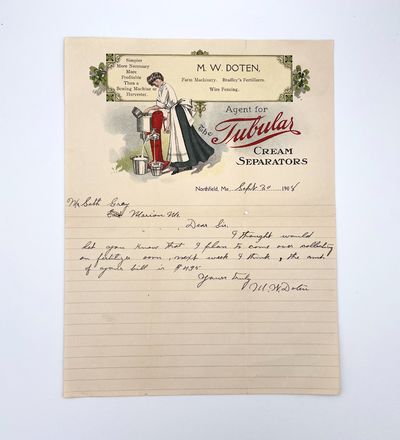 Simpler
More Necessary
More
Profitable
Than a
Sewing Machine or
Harvester.
M. W. DOTEN,
Farm Machinery. Bradley's Fertilizers.
Wire Fencing.
Agent for
The Tubular
CREAM
SEPARATORS
Northfield, Me. Sept 20 1908
Mr Seth Gray
Marion Me.
Dear Sir.
I thought would
let you know that I plan to come over collecting
on fertilizer soon, next week I think, the amt
of your bill is $
Yours truly
M. W. Doten